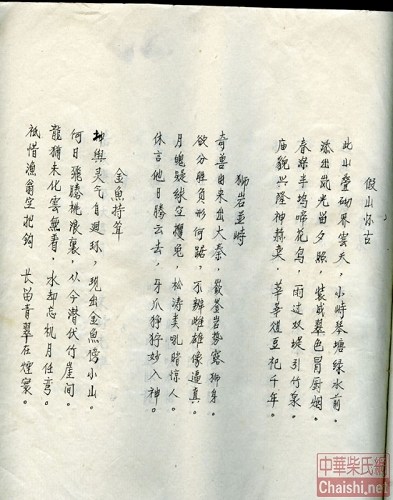 假山怀古
此山叠砌界雲天，小時琴塘绿水前。
添出嵐光当夕照，装成翠色冒厨烟。
春深半坞啼花鸟，雨过双堤引竹泉。
庙貌兴隆神赫奕，莘莘豆祀千年。
狮岩並峙
奇兽由来出大秦，崟岩势露狮身。
欲分胜负形何踞，不辨雌雄像逼真。
月魄疑緣空攫兔，松涛类吼暗惊人。
休言他日腾云去，牙爪狰狞妙入神。
金魚持笋
與吴气自迴环，现出金魚傍小山。
何日飛騰桃浪裏，从今潜伏竹崖间。
龍猶未化雲無看，水却忘机月任弯。
祗惜漁翁空把鈎，长笛青翠在煙寰。
中華柴氏網
Chaishi.net